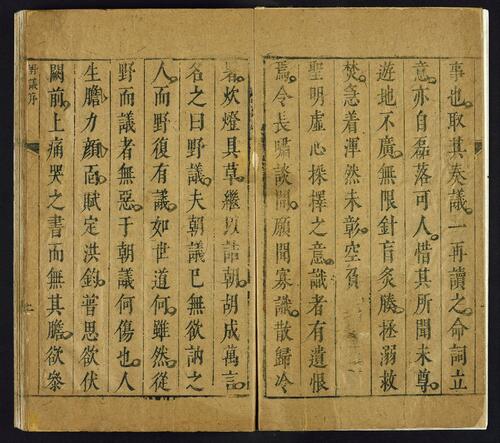 事也取其奏議一再讀之命詞立
意亦自磊落可人惜其所聞未尊
遊地不廣無限針肓灸腠拯溺救
焚急着渾然未彰空負
聖明虛心採擇之意識者有遺恨
焉令長嘯談間願聞寡識散歸冷
署炊燈具草繼以詰朝胡成萬言
名之曰野議夫朝議已無欲訥之
人而野復有議如世道何雖然從
野而議者無惡于朝議何傷也人
生膽力顔面賦定洪鈞普思欲伏
闕前上痛哭之書而無其膽欲參
野議序